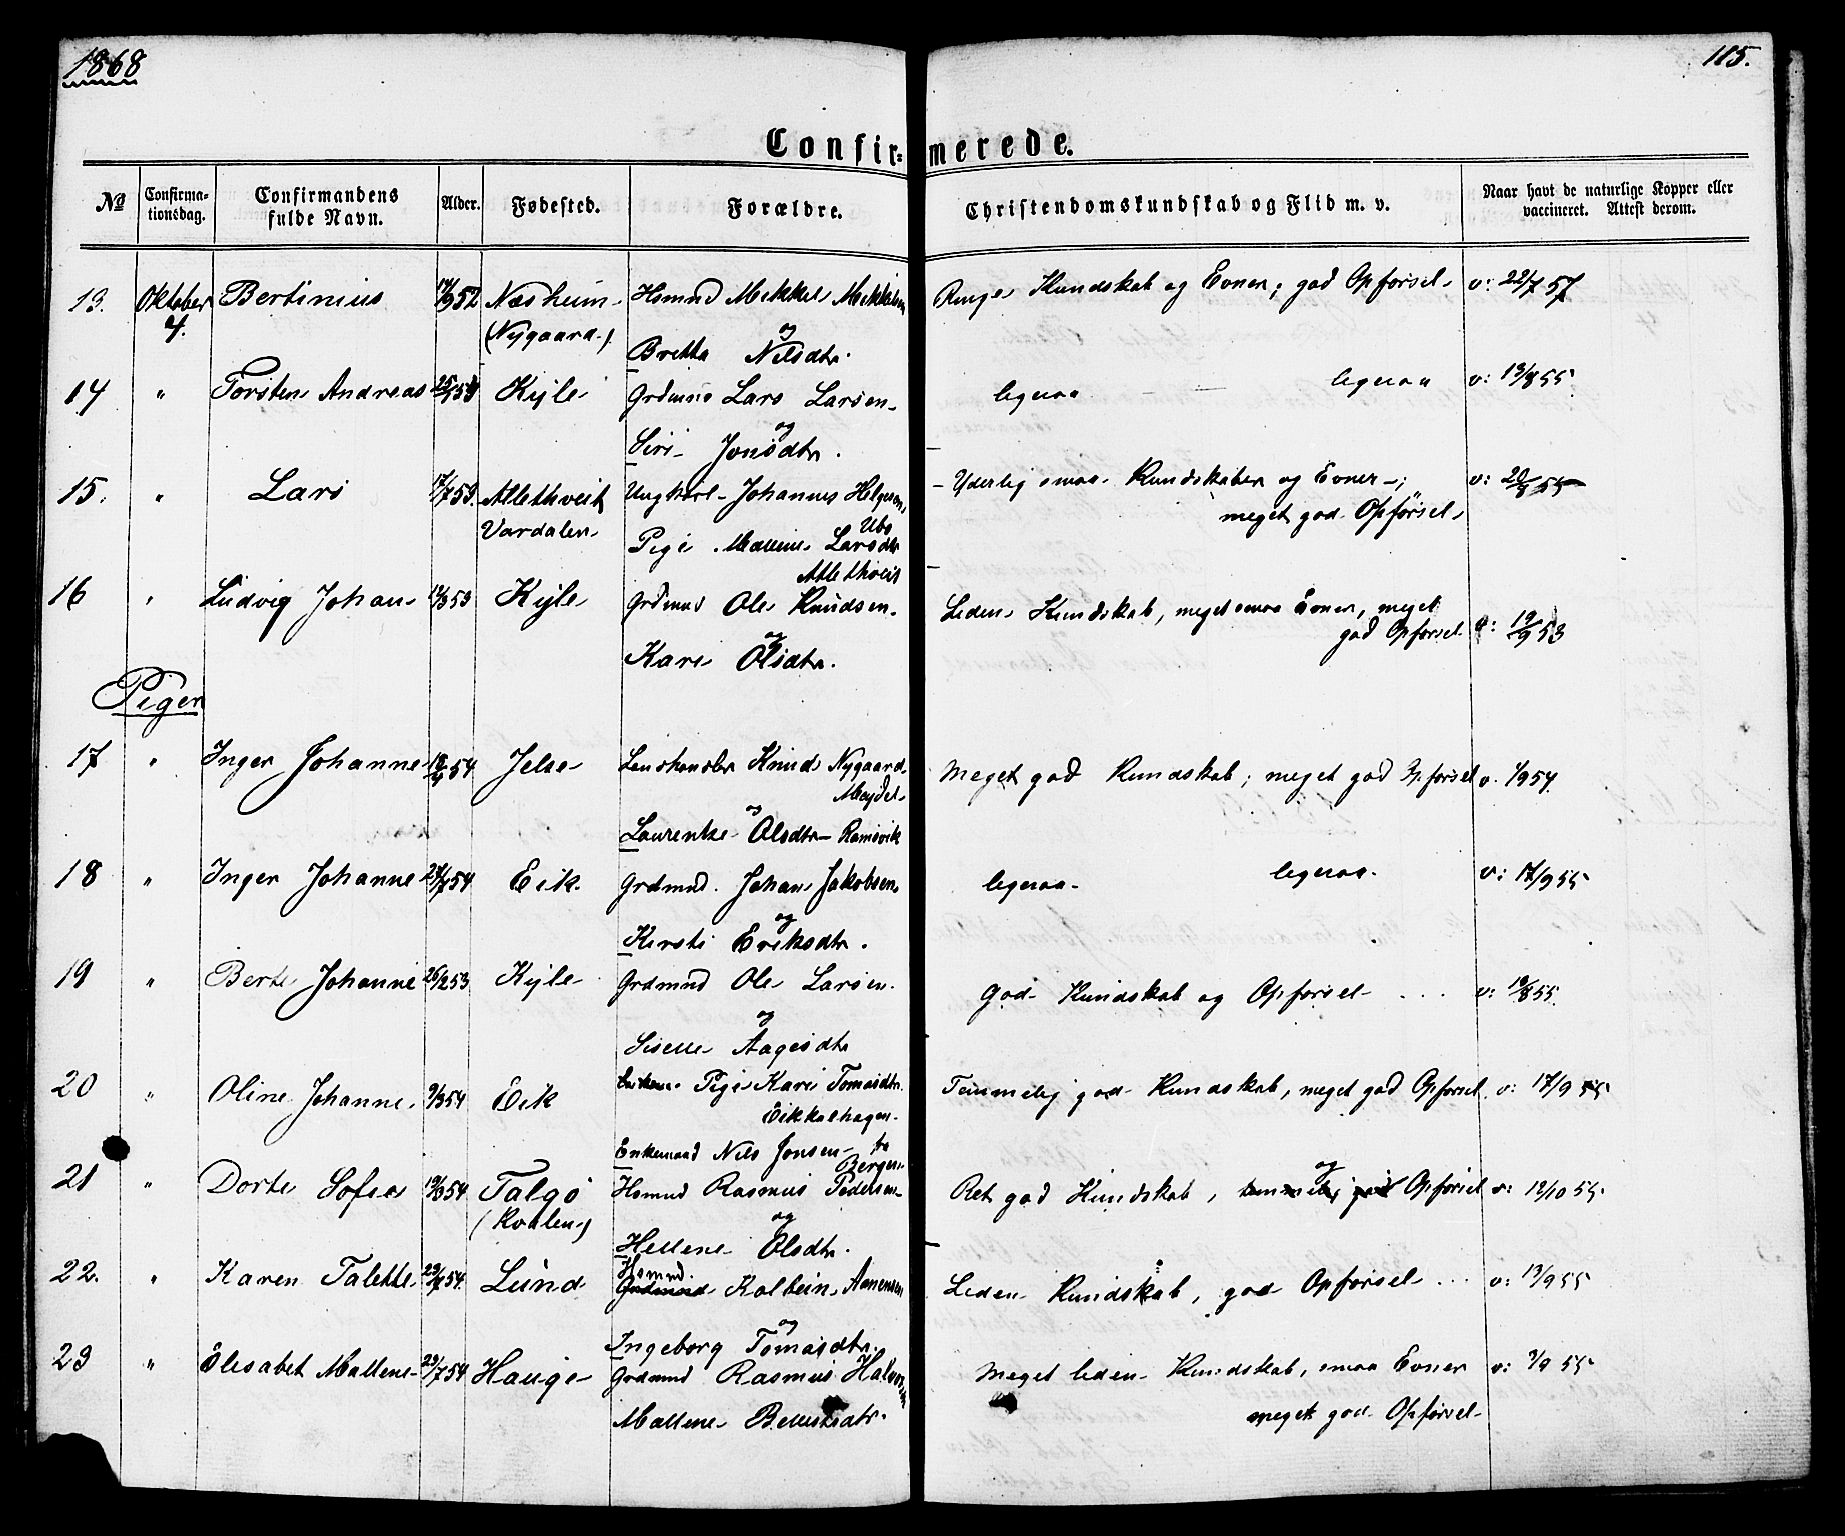 1868
115.
Confir= merede.
No
Confirma-
tionsdag.
Confirmandens
fulde Navn.
Alder.
Fødested.
Forældre.
Christendomskundskab og Flid m. v.
Naar havt de naturlige Kopper eller
vaccineret. Attest derom.
13. Oktober Bertinius 52 Næsheim Hsmnd Mikkel Mikkelsen Ringe Kundskab og Evner; god Opførsel v: 22/7 57
4. (Nygaard)
og
Britta Nilsdtr.
14 " Torsten Andreas Kyle Grdmnd Lars Larsen ligesaa ligesaa v: 13/8 55
og
Siri Jonsdtr.
15. " Lars 17/7 53. Atlethveit Ungkarl Johannes Helgesen Yderlig smaa Kundskaber og Evner; v: 20/8 55
Vardalen Ubø meget god Opførsel
Pige Mallene Larsdtr
Atlethveit
16 " Ludvig Johan 53 Kyle Grdmnd Ole Knudsen Liden Kundskab, meget smaa Evner, meget
god Opførsel v: 19/9 53
og
Kari Olsdtr.
Piger
17 " Inger Johanne 54 Jelse Knud Nygaard Meget god Kundskab; meget god Opførsel v. 1/9 54.
og
Laurentze Olsdtr Ramsvik
18 " Inger Johanne 54 Eik Grdmnd. Johan Jakobsen ligesaa ligesaa v: 17/9 55
og
Kirsti Eriksdtr.
19 " Berte Johanne 26/2 53 Kyle Grdmnd Ole Larsen God Kundskab og Opførsel . . . v: 55
og
Siselle Aagesdtr
20 " Oline Johanne 9/3 54 Eik Pige Kari Tomasdtr Temmelig god Kundskab, meget god Opførsel v: 17/9 55
Eikkelhagen
Enkemand Nils Jonsen fra
Bergen
21 " Dorte Sofie 54 Talgø Hsmnd Rasmus Pedersen Ret god Kundskab, og temmelig god Opførsel v: 12/10 55
(Kvalen)
og
Hellene Olsdtr.
22. " Karen Talette 54. Lund Hsmnd. Grdmnd Kolbein Aanensen Liden Kundskab, god Opførsel . . . v: 13/9 55
og
Ingeborg Tomasdtr.
23 " Elisabet Mallene 29/7 54 Hauge Grdmnd Rasmus Halvorsen Meget liden Kundskab, smaa Evner v: 55
Mallene meget god Opførsel